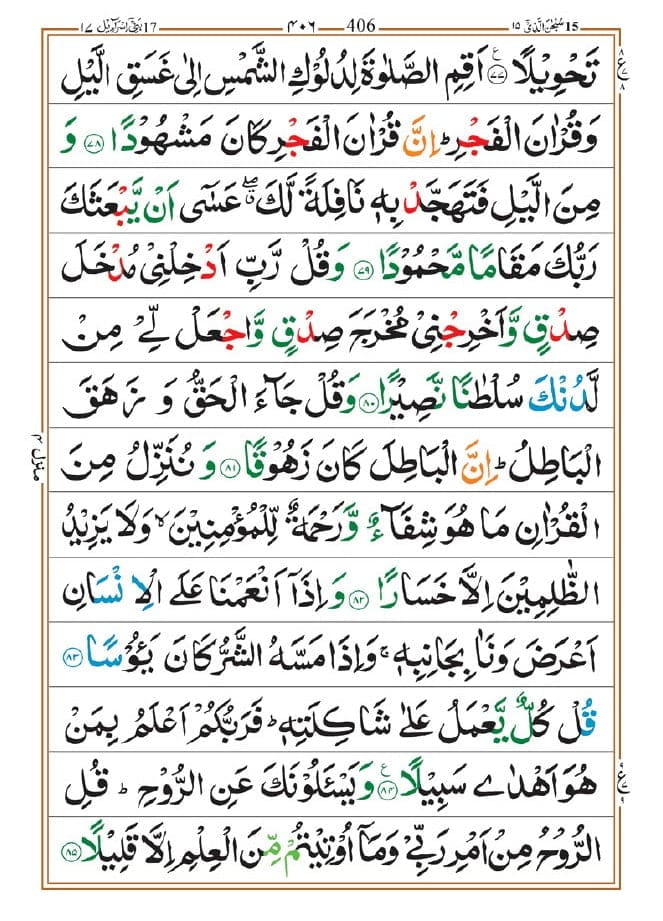 15 سُبْحٰنَ الَّذِیْۤ ١٥ 406 ٤٠٦ 17 بَنِیْۤ اِسْرَآءِیْل ١٧
تَحْوِیْلًا ﴿٧٧﴾ اَقِمِ الصَّلٰوةَ لِدُلُوْكِ الشَّمْسِ اِلٰی غَسَقِ الَّیْلِ
وَقُرْاٰنَ الْفَجْرِ ؕ اِنَّ قُرْاٰنَ الْفَجْرِ كَانَ مَشْهُوْدًا ﴿٧٨﴾ وَ
مِنَ الَّیْلِ فَتَهَجَّدْ بِهٖ نَافِلَةً لَّكَ ۖۗ عَسٰۤی اَنْ یَّبْعَثَكَ
رَبُّكَ مَقَامًا مَّحْمُوْدًا ﴿٧٩﴾ وَقُلْ رَّبِّ اَدْخِلْنِیْ مُدْخَلَ
صِدْقٍ وَّاَخْرِجْنِیْ مُخْرَجَ صِدْقٍ وَّاجْعَلْ لِّیْ مِنْ
لَّدُنْكَ سُلْطٰنًا نَّصِیْرًا ﴿٨٠﴾ وَقُلْ جَآءَ الْحَقُّ وَ زَهَقَ
الْبَاطِلُ ؕ اِنَّ الْبَاطِلَ كَانَ زَهُوْقًا ﴿٨١﴾ وَ نُنَزِّلُ مِنَ
الْقُرْاٰنِ مَا هُوَ شِفَآءٌ وَّرَحْمَةٌ لِّلْمُؤْمِنِیْنَ ۙ وَلَا یَزِیْدُ
الظّٰلِمِیْنَ اِلَّا خَسَارًا ﴿٨٢﴾ وَاِذَاۤ اَنْعَمْنَا عَلَی الْاِنْسَانِ
اَعْرَضَ وَنَاٰ بِجَانِبِهٖ ۚ وَاِذَا مَسَّهُ الشَّرُّ كَانَ یَـُٔوْسًا ﴿٨٣﴾
قُلْ كُلٌّ یَّعْمَلُ عَلٰی شَاكِلَتِهٖ ؕ فَرَبُّكُمْ اَعْلَمُ بِمَنْ
هُوَ اَهْدٰی سَبِیْلًا ﴿٨٤﴾ وَیَسْـَٔلُوْنَكَ عَنِ الرُّوْحِ ؕ قُلِ
الرُّوْحُ مِنْ اَمْرِ رَبِّیْ وَمَاۤ اُوْتِیْتُمْ مِّنَ الْعِلْمِ اِلَّا قَلِیْلًا ﴿٨٥﴾
منزل ٤